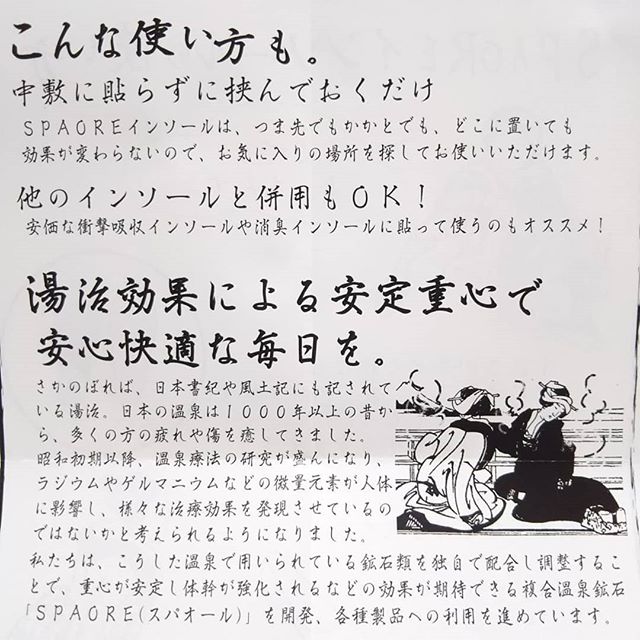 こんな使い方も。
中敷に貼らずに挟んでおくだけ
ＳＰＡＯＲＥインソールは、つま先でもかかとでも、どこに置いても
効果が変わらないので、お気に入りの場所を探してお使いいただけます。
他のインソールと併用もＯＫ！
安価な衝撃吸収インソールや消臭インソールに貼って使うのもオススメ！
湯治効果による安定重心で
安心快適な毎日を。
さかのぼれば、日本書紀や風土記にも記されて
いる湯治。日本の温泉は１０００年以上の昔か
ら、多くの方の疲れや傷を癒してきました。
昭和初期以降、温泉療法の研究が盛んになり、
ラジウムやゲルマニウムなどの微量元素が人体
に影響し、様々な治療効果を発現させているの
ではないかと考えられるようになりました。
私たちは、こうした温泉で用いられている鉱石類を独自で配合し調整するこ
とで、重心が安定し体幹が強化されるなどの効果が期待できる複合温泉鉱石
「ＳＰＡＯＲＥ(スパオール)」を開発、各種製品への利用を進めています。